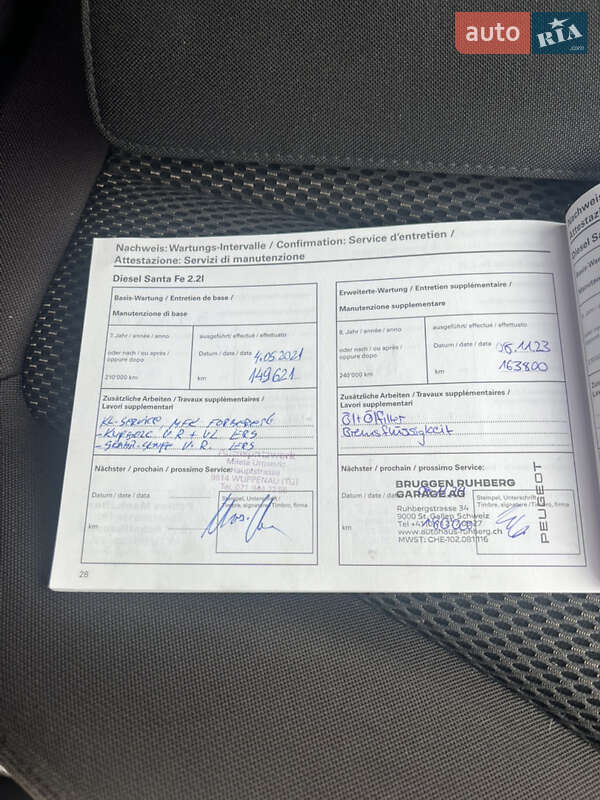 auto RIA .com
Nachweis: Wartungs-Intervalle / Confirmation: Service d'entretien /
Attestazione: Servizi di manutenzione
Diesel Santa Fe 2.2l
Basis-Wartung / Entretien de base /
Manutenzione di base
7. Jahr / année / anno
ausgeführt / effectué / effettuato
oder nach / ou après /
oppure dopo
Datum / date / data
4.05.2021
210'000 km
km
149621
Zusätzliche Arbeiten / Travaux supplémentaires /
Lavori supplementari
KL-SERVICE MFK
V.R + V.L ERS
V.R. ERS
Nächster / prochain / prossimo Service:
Hauptstrasse
9514 WUPPENAU (TG)
Datum / date / data
Stempel, Unterschrift
Timbre, signature / Timbro, firma
km
28
Erweiterte-Wartung / Entretien supplémentaire /
Manutenzione supplementare
8. Jahr / année / anno
ausgeführt / effectué / effettuato
oder nach / ou après /
oppure dopo
Datum / date / data
08.11.23
240'000 km
km
163800
Zusätzliche Arbeiten / Travaux supplémentaires /
Lavori supplementari
Öl + Ölfilter
Bremsflüssigkeit
Nächster / prochain / prossimo Service:
BRUGGEN RUHBERG
GARAGE AG
Datum / date / data
Stempel, Unterschrift
Timbre, signature / Timbro, firma
Ruhbergstrasse 34
9000 St. Gallen Schweiz
km
www.autohaus-ruhberg.ch
MWST: CHE-102.081.116
PEUGEOT
Nachweis
Attestazi
Diesel Sa